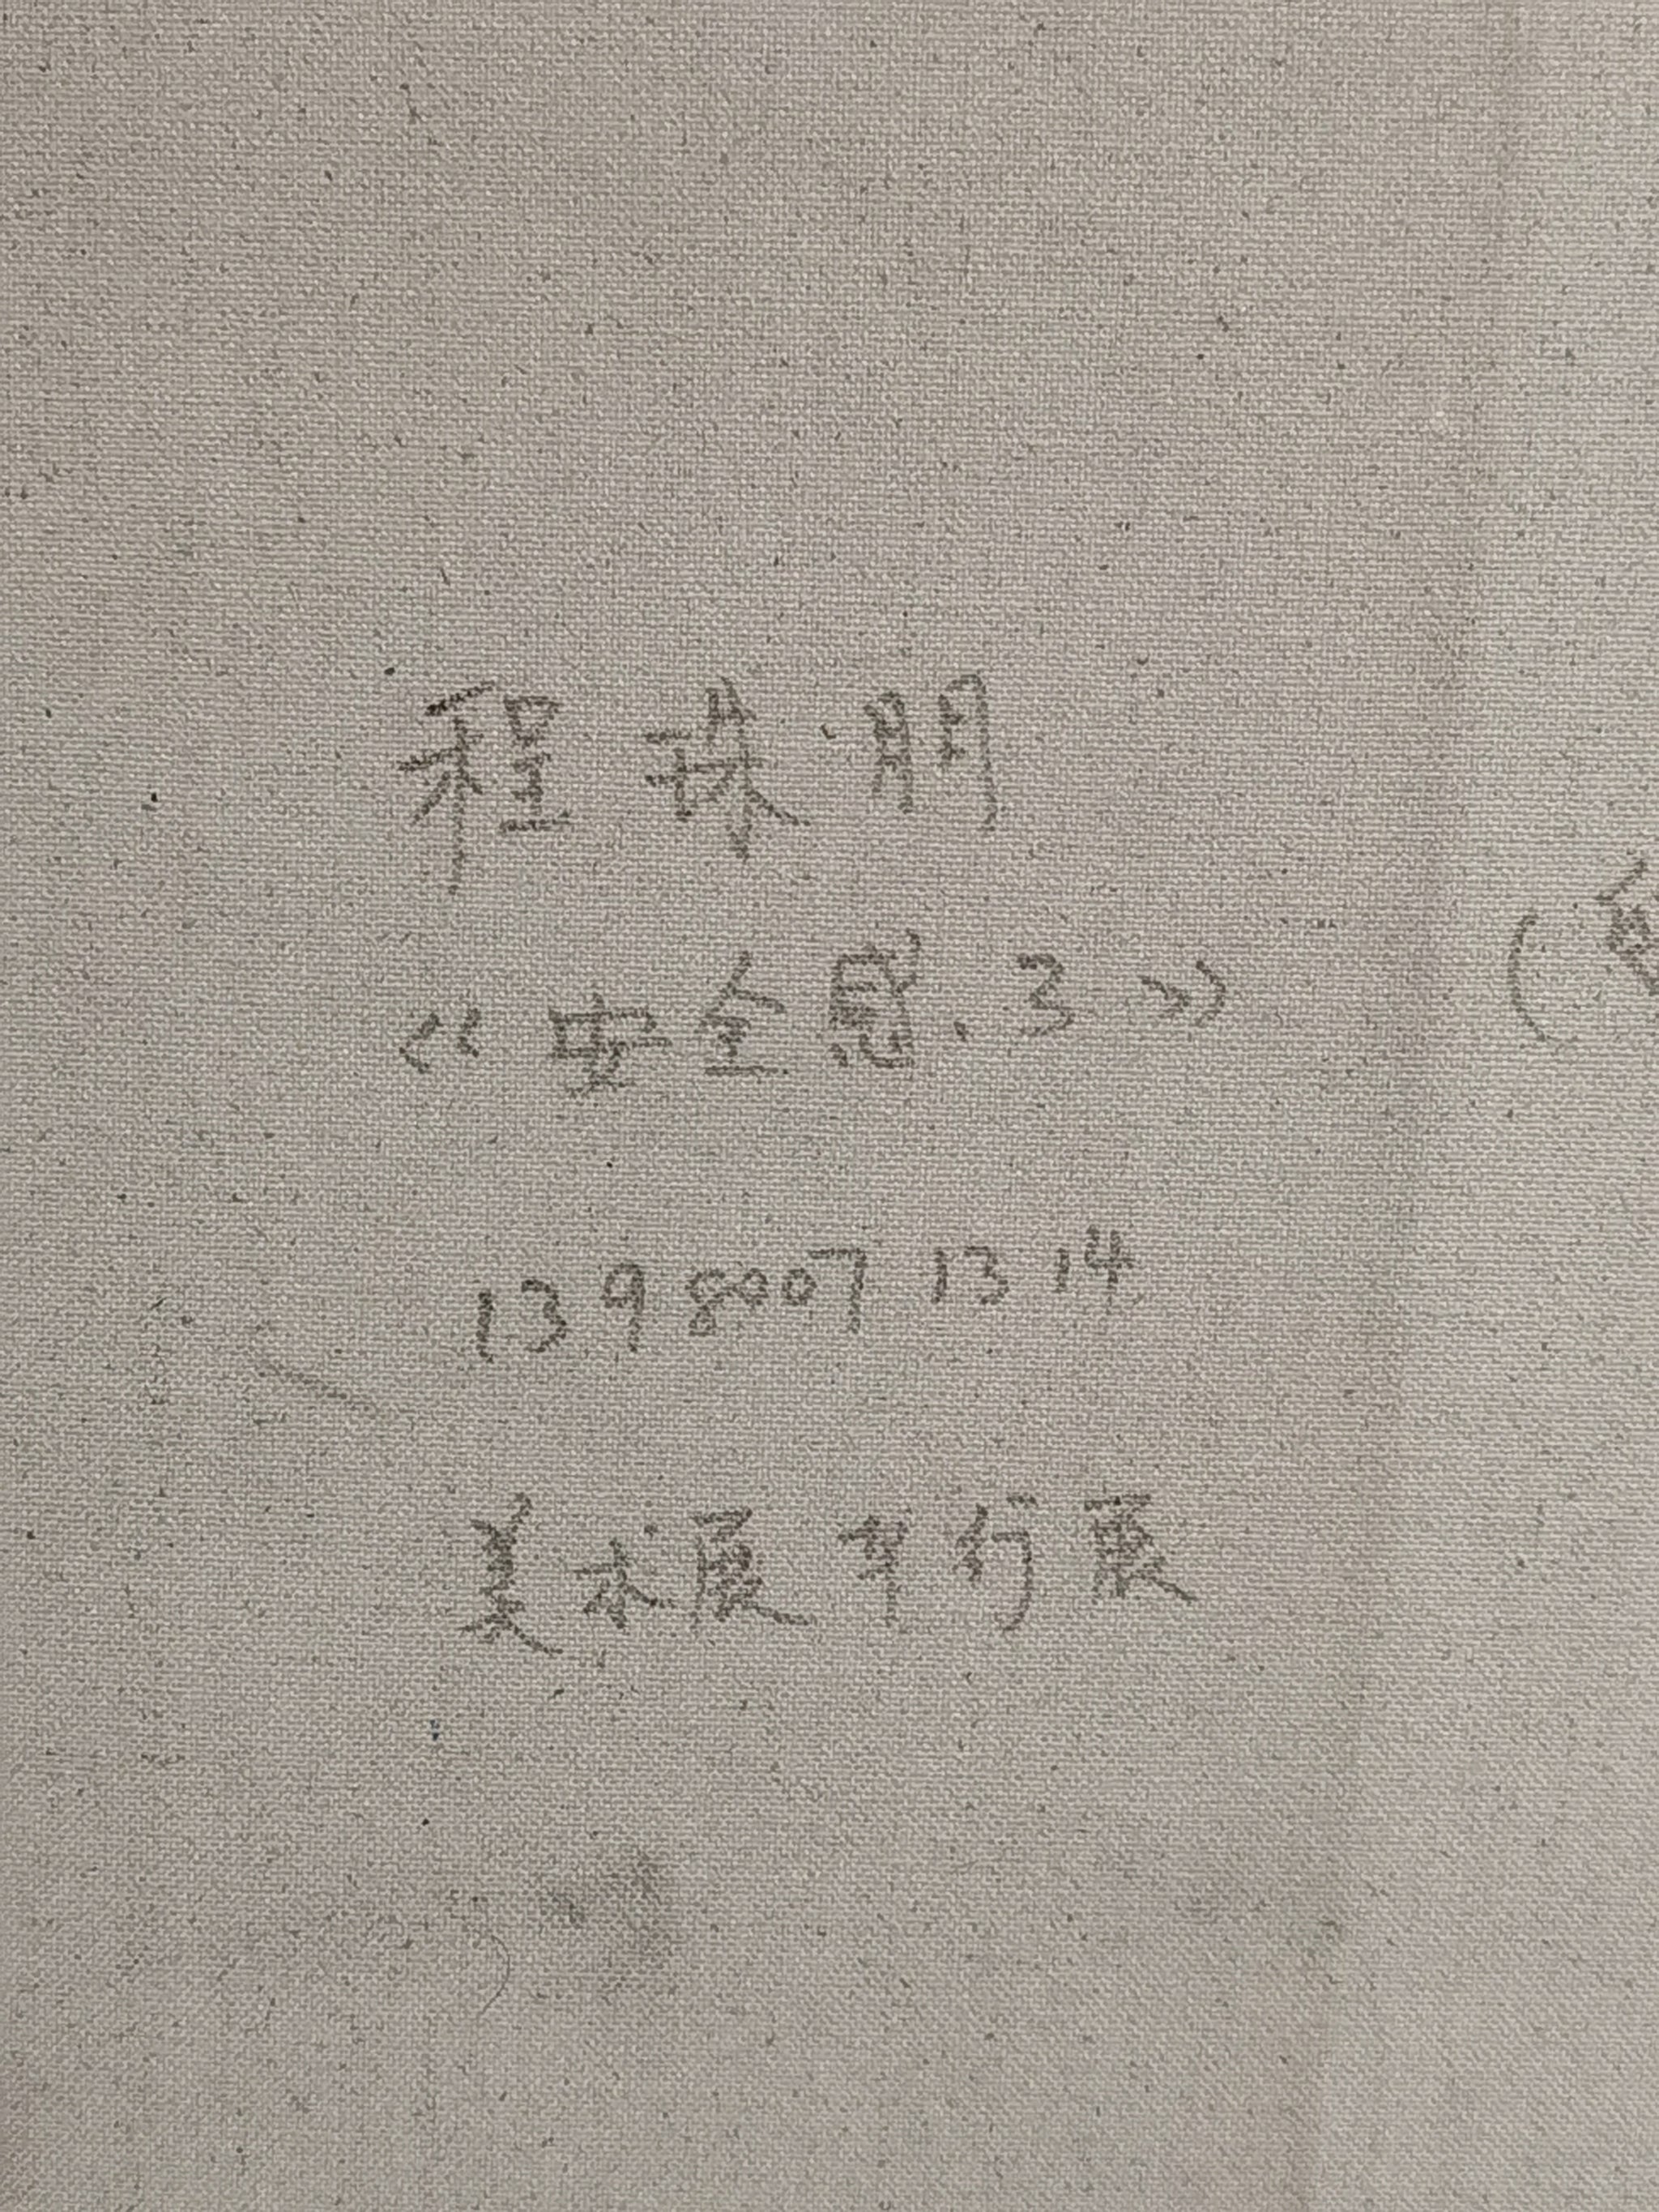 程珠明
《安全感.3》
139 8007 1314
美术展平行展
(